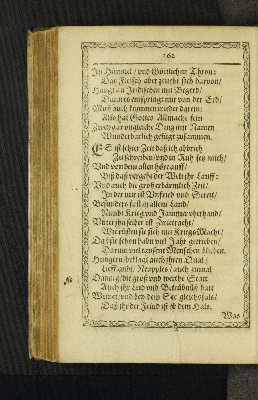 162
Im Himmel / und Göttlichen Thron:
Das Fleisch aber zeucht sich darvon /
Hangt an Irdischen mit Begird /
Dann es entspringt nur von der Erd /
Muß auch kommen wieder darein:
Also hat Gottes Allmacht fein
Zwey gar ungleiche Ding mit Namen
Wunderbarlich gefügt zusammen.
ES ist jetzter Zeit daß ich abbrich
Zu schreiben / und in Ruh setz mich /
Und von dem allen höre auff /
Biß daß vergeht der Welt ihr Lauff:
Und auch die groß erbärmlich Zeit /
In der nur ist Unfried und Streit /
Besonders fast in allem Land /
Nimbt Krieg und Jammer überhand /
Unter ihn selber ist Zwietracht /
Wie rüsten sie sich mit Kriegs-Macht /
Daß sie schon habn viel Jahr getrieben /
Darum viel tausent Menschen blieben.
Hungern / beklagt auch ihren Qual /
Neapples / auch zumal
Danzig / die groß und werthe Statt
Auch ihr Leid und Betrübnüß hatt
Weiter / und bey dem See gleichsfals /
Daß ihr der Feind ist ob dem Hals.
Was